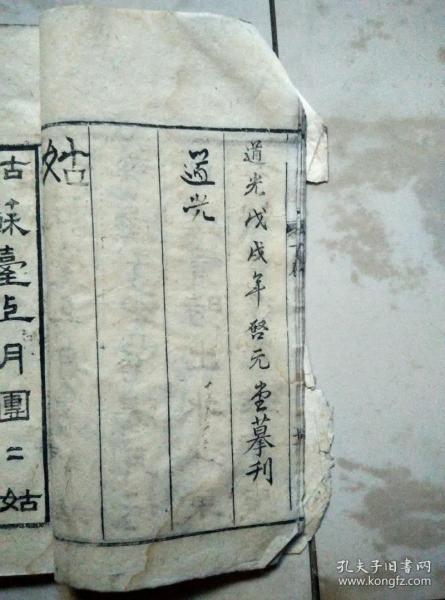 道光戊戌年啓元堂摹刊
道光
姑
古蘇臺上月團二姑
孔夫子旧书网
www.kongfz.com